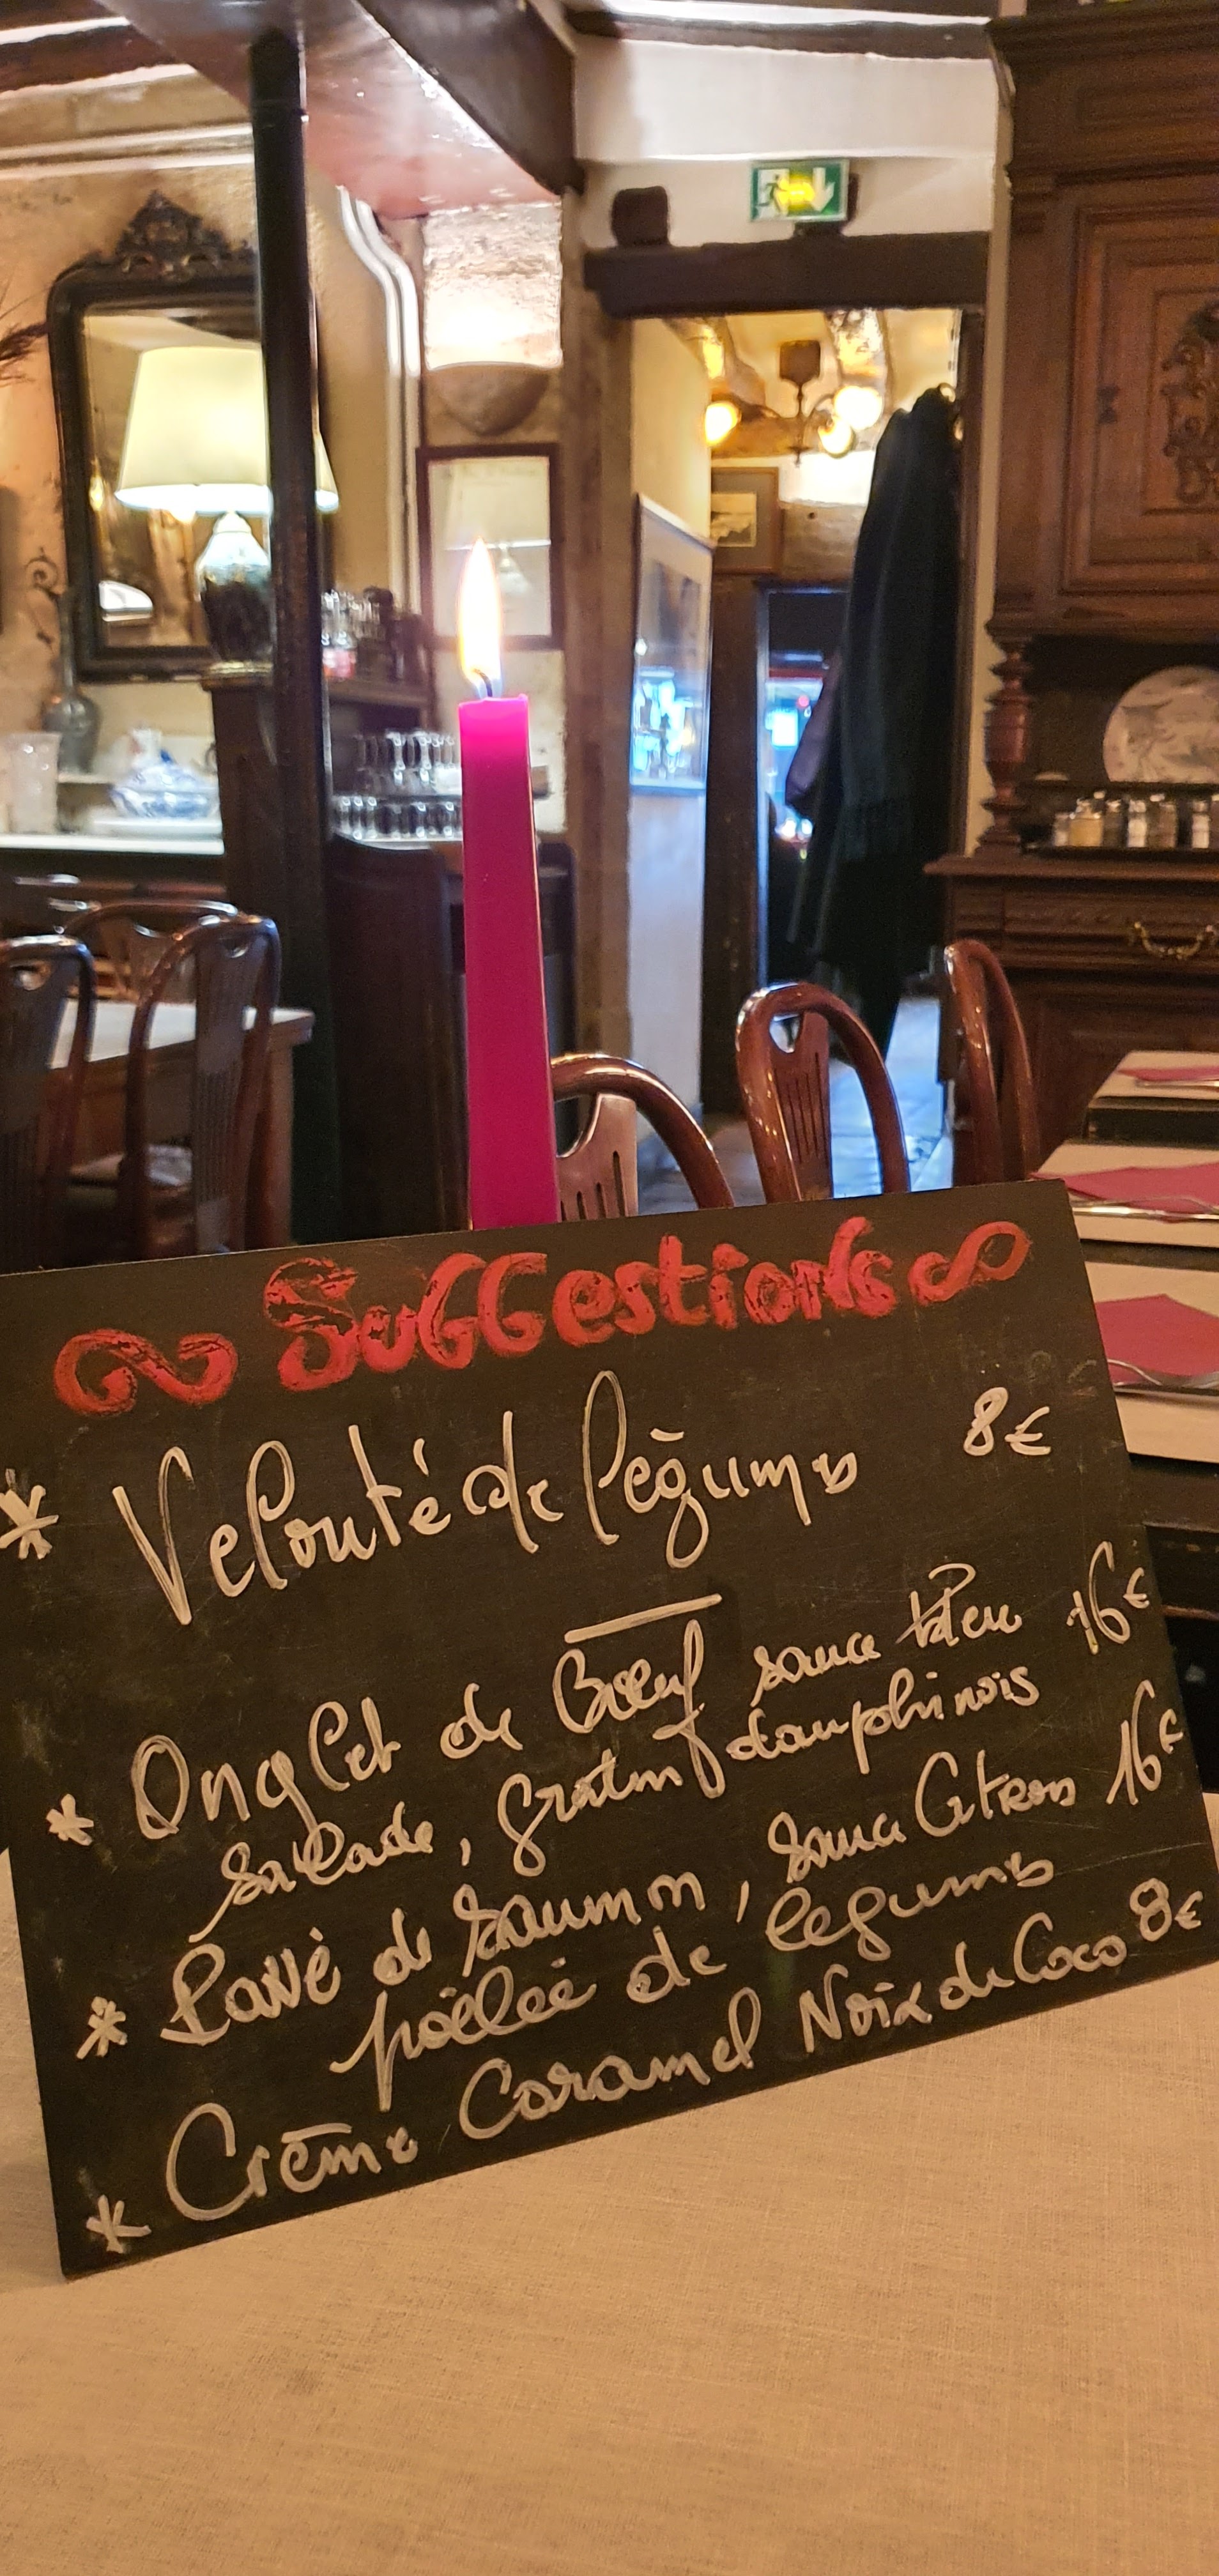 SuGGestions
* Velouté de légumes 8€
* Onglet de Bœuf sauce bleu 16€
salade, gratin dauphinois
* Pavé de saumon, sauce Citron 16€
poêlée de legumes
* Crème Caramel Noix de Coco 8€